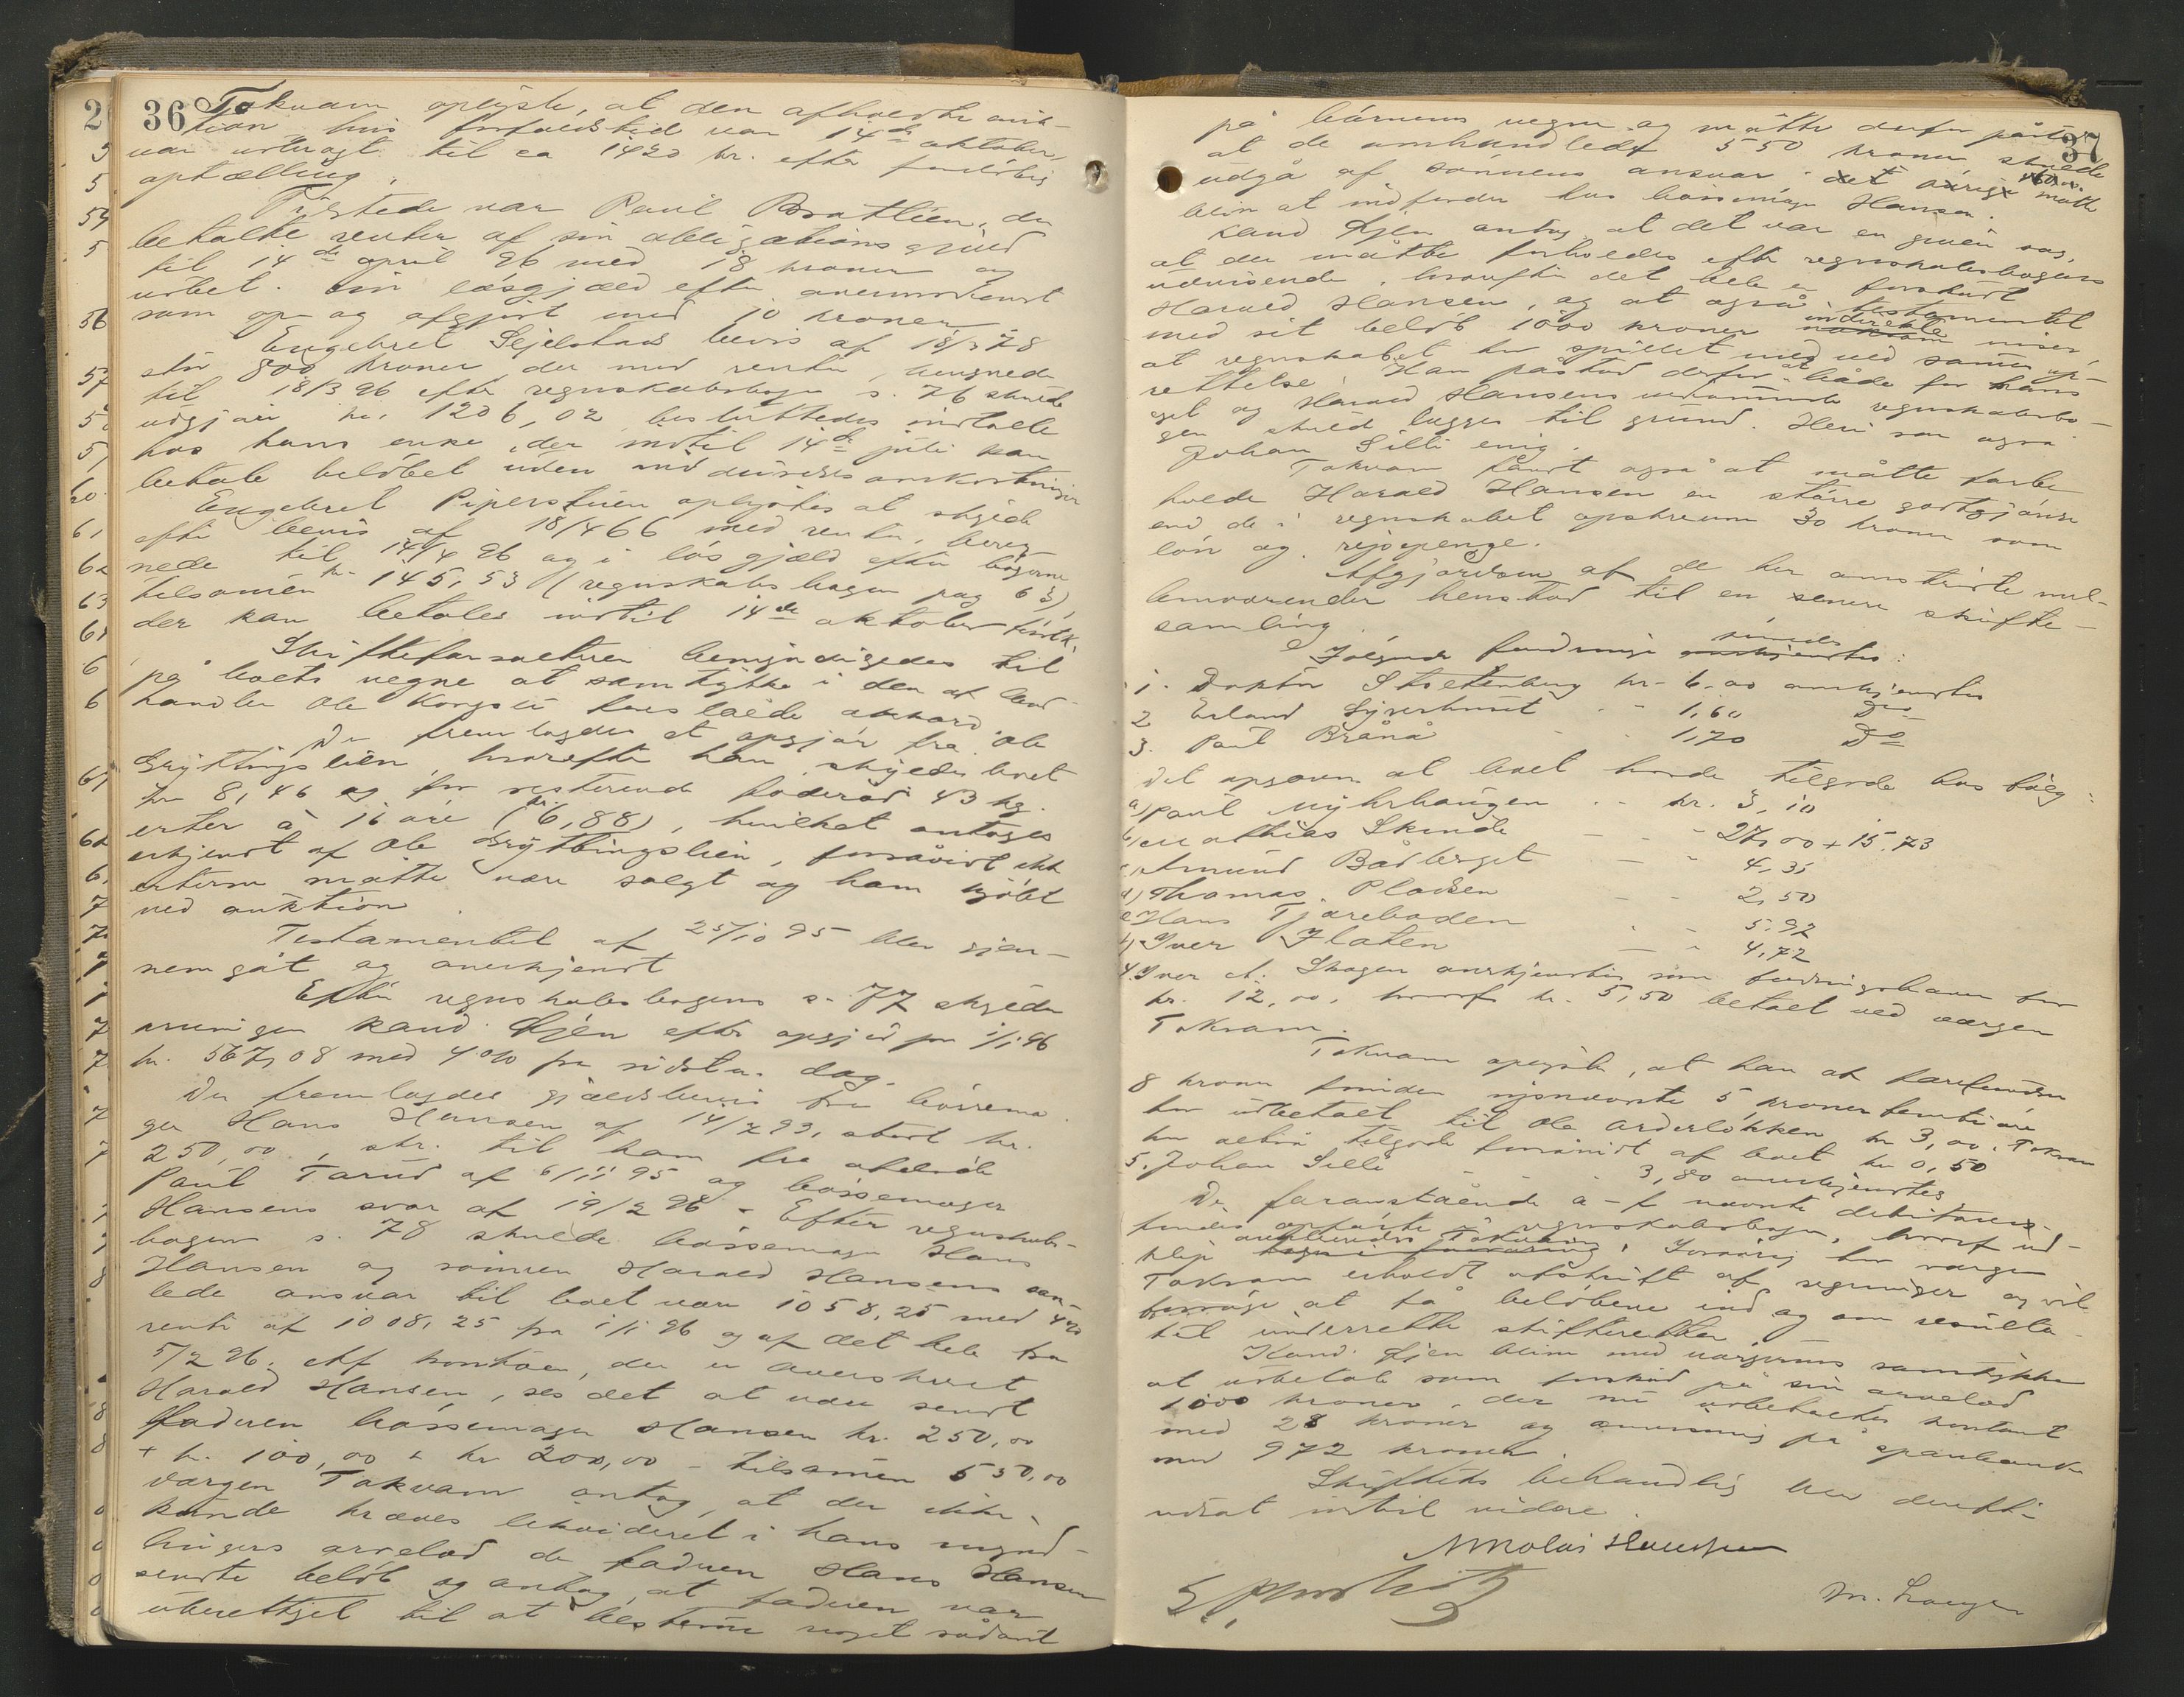 36
Tokvam oplyste, at den afholdte auk-
tion hvis forfaldstid var 14de oktober,
var udbragt til ca 1420 kr. efter foreløbig
optælling.
Tilstede var Paul Bratlien, der
betalte renter af sin obligations gjæld
til 14de april 96 med 18 kroner og
sin løsgjæld efter
som op og afgjort med 10 kroner
Engebret Skjelstads bevis af 18/3 78
stor 800 kroner der med renter, beregnede
til 18/3 96 efter regnskabsbogen s. 76 skulde
udgjøre kr. 1206,02 besluttedes indtalt
hos hans enke, der indtil 14de juli kan
betale beløbet uden omkostninger
Engebret Piperstuen oplystes at skylde
efter bevis af 18/4 66 med renter, bereg-
nede til 14/4 96 og i løs gjæld efter bøgerne
tilsamen kr. 145,53 (regnskabs bogen pag 63),
der kan betales indtil 14de oktober førstk.
Skifteforvalteren bemyndigedes til
på boets vegne at samtykke i den af land-
handler Ole Kongsli foreslåede akkord.
Der fremlagdes et opgjør fra Ole
Gryttingslien, hvorefter han skylder boet
kr 8,46 og for resterende føderåd 43 kg.
erter à 16 øre (kr. 6,88), hvilket antages
erkjendt af Ole Gryttingslien, forsåvidt ikke
erterne måtte være solgt og ham kjøbt
ved auktion.
Testamentet af 25/10 95 blev gjen-
nemgåt og anerkjendt
Efter regnskabsbogens s. 77 skylder
arvingen kand. Lien efter opgjød pr 1/1 96
kr. 567,08 med 4 % fra sidstn. dag.
Der fremlagdes gjældsbevis fra børsema-
ger Hans Hansen af 14/7 93, stort kr.
250,00, skr. til ham fra afdøde
Paul Tarud af 6/11 95 og børsemager
Hansens svar af 19/2 96. Efter regnskabs-
bogens s. 78 skulde børsemager Hans
Hansen og sønnen Harald Hansens sam-
lede ansvar til boet være 1058,25 med 4 %
rente af 1008,25 fra 1/1 96 og af det hele fra
5/2 96. Af kontoen, der er overskrevet
Harald Hansen, ses det at være sendt
faderen børsemager Hansen kr. 250,00
+ kr. 100,00 + kr 200,00 - tilsamen 550,00
Værgen Tokvam antog, at der ikke
kunde kræves likvideret i hans mynd-
lingers arvelod de faderen Hans Hansen
sendte beløb og antog, at faderen var
uberettiget til at bestemme noget sådant
37
på børnenes vegne og måtte derfor påstå
at de omhandlede 550 kroner skulde
udgå af sønnens ansvar. måtte
blive at indfordre hos børsemager Hansen.
Kand Lien antog, at det var en given sag,
at der måtte forholdes efter regnskabsbogens
udvisende, hvorefter det hele er forskudt
Harald Hansen, og at også testamentet
med sit beløb 1000 kroner indirekte viser,
at regnskabet har spillet med ved sammes op-
rettelse. Han påstod derfor at både for hans
eget og Harald Hansens vedkommende regnskabsbo-
gen skulde lægges til grund. Heri var også
Johan Silli enig.
Tokvam fandt også at måtte forbe-
holde Harald Hansen en større godtgjørelse
end de i regnskabet opskrevne 30 kroner som
løn og rejsepenge.
Afgjørelsen af de her omstridte mel-
lemværender henstod til en senere skifte-
samling.
Følgende fordringer :
1. Doktor Stoltenberg kr. 6,00 anerkjendtes
2 Erland Lyverhuset - - 1,60 Do
3. Paul Brånå - - 1,70 Do
Det opsavn at boet havde tilgode hos følg:
a) Paul Myhrhaugen - - kr. 3,10
b) Mathias Skinde - - - 27,00 + 15,73
c) Amund Bådberget - - 4,35
d) Thomas Pladsen - - 2,50
e Hans Tjæreboden - - 5,92
f) Iver Flaten - - 4,72
4. Iver A. Skogen anerkjendtes som fordringshaver for
kr. 12,00, hvoraf kr. 5,50 betalt ved værgen
Tokvam.
Tokvam oplyste, at han af forefundne
8 kroner foruden nysnævnte 5 kroner femti øre
har udbetalt til Ole Arderløkken kr 3,00. Tokvam
har altså tilgode forsåvidt af boet kr 0,50
5. Johan Silli - 3,80 anerkjendtes
De foranstående a - f nævnte debitorer
findes opførte i regnskabsbogen, hvoraf ud-
klip Tokvam. Forøvrig har værgen
Tokvam erholdt afskrift af regninger og vil
forsøge at få beløbene ind og om resulta-
tet underrette skifteretten.
Kand. Lien blev med værgernes samtykke
at udbetale som forskud på sin arvelod
1000 kroner, der nu udbetaltes kontant
med 28 kroner og anvisning på sparebanken
med 972 kroner.
Skiftets behandling blev derefter
udsat indtil videre.
Nikolai Hansen
M. Haugen